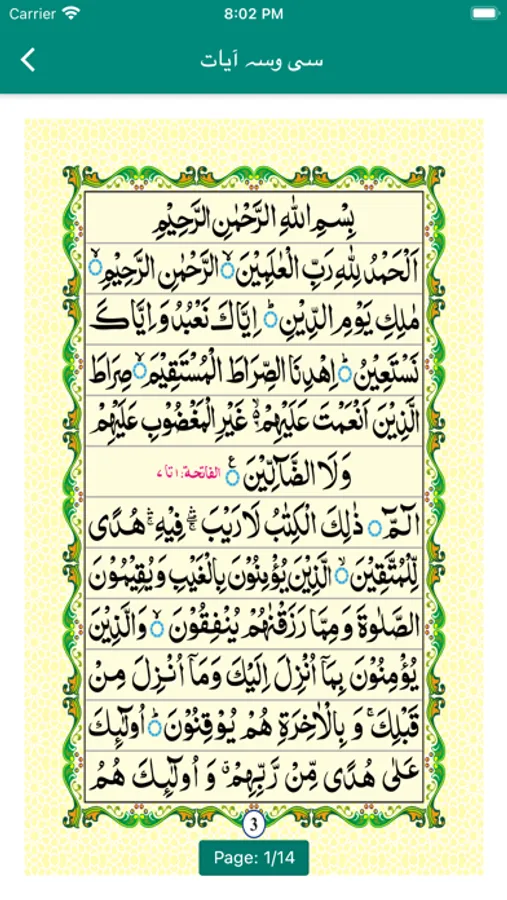 Carrier 8:02 PM
سی وسہ آیات
بِسْمِ اللهِ الرَّحْمٰنِ الرَّحِيْمِ
اَلْحَمْدُ لِلّٰهِ رَبِّ الْعٰلَمِيْنَ ۙ الرَّحْمٰنِ الرَّحِيْمِ ۙ
مٰلِكِ يَوْمِ الدِّيْنِ ؕ اِيَّاكَ نَعْبُدُ وَاِيَّاكَ
نَسْتَعِيْنُ ؕ اِهْدِنَا الصِّرَاطَ الْمُسْتَقِيْمَ ۙ صِرَاطَ
الَّذِيْنَ اَنْعَمْتَ عَلَيْهِمْ ۙ۬ غَيْرِ الْمَغْضُوْبِ عَلَيْهِمْ
وَلَا الضَّآلِّيْنَ ۧ الفاتحة: ۱ تا ۷
الٓمّٓ ۚ ذٰلِكَ الْكِتٰبُ لَا رَيْبَ ۛۖ فِيْهِ ۛۚ هُدًى
لِّلْمُتَّقِيْنَ ۙ الَّذِيْنَ يُؤْمِنُوْنَ بِالْغَيْبِ وَيُقِيْمُوْنَ
الصَّلٰوةَ وَمِمَّا رَزَقْنٰهُمْ يُنْفِقُوْنَ ۙ وَالَّذِيْنَ
يُؤْمِنُوْنَ بِمَاۤ اُنْزِلَ اِلَيْكَ وَمَاۤ اُنْزِلَ مِنْ
قَبْلِكَ ۚ وَبِالْاٰخِرَةِ هُمْ يُوْقِنُوْنَ ؕ اُولٰٓئِكَ
عَلٰى هُدًى مِّنْ رَّبِّهِمْ ۗ وَ اُولٰٓئِكَ هُمُ
3
Page: 1/14